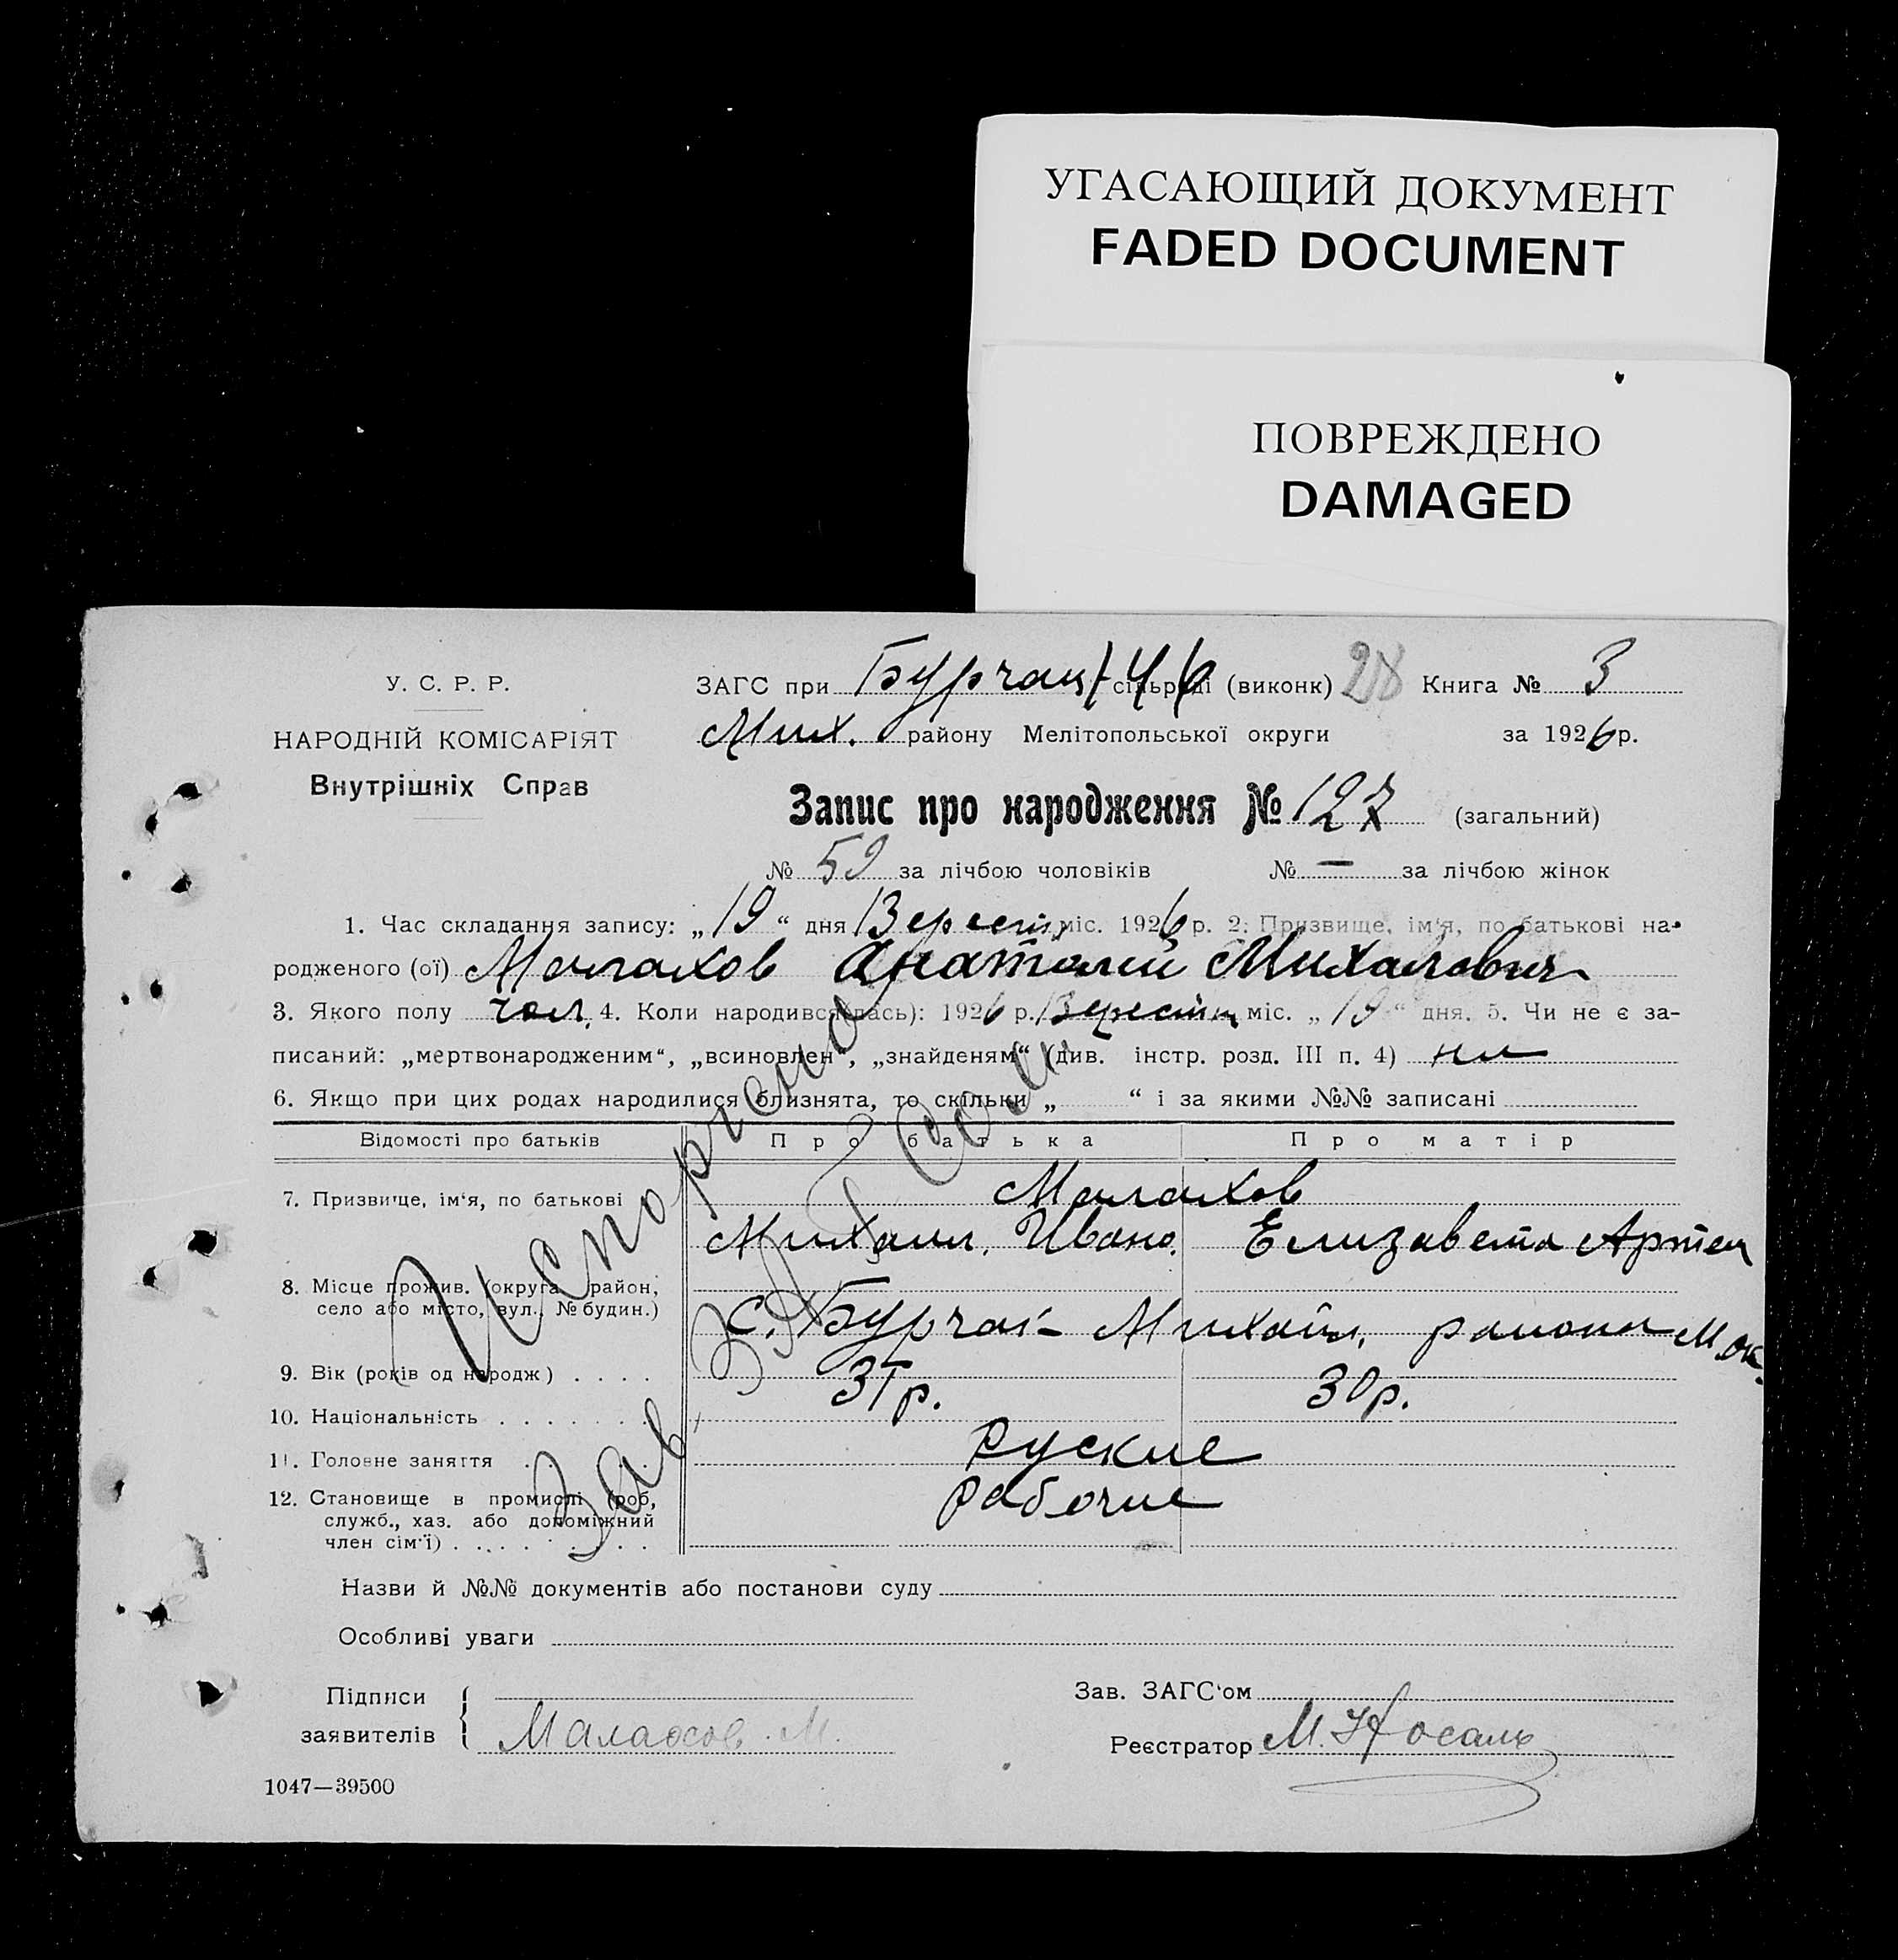 УГАСАЮЩИЙ ДОКУМЕНТ
FADED DOCUMENT
ПОВРЕЖДЕНО
DAMAGED
У. С. Р. Р.
НАРОДНІЙ КОМІСАРІЯТ
Внутрішніх Справ
ЗАГС при сільраді (виконк) 28 Книга № 3
Мих. району Мелітопольської округи за 1926 р.
Запис про народження № 127 (загальний)
№ 59 за лічбою чоловіків № — за лічбою жінок
1. Час складання запису: „19“ дня Вересня міс. 1926 р. 2. Призвище, ім'я, по батькові на-
родженого (ої) Малахов Анатолий Михайлович
3. Якого полу чол. 4. Коли народився (лась): 1926 р. Вересня міс. „19“ дня. 5. Чи не є за-
писаний: „мертвонародженим“, „всиновлен“, „знайденям“ (див. інстр. розд. III п. 4)
6. Якщо при цих родах народилися близнята, то скільки „ “ і за якими №№ записані
Відомості про батьків Про батька Про матір
7. Призвище, ім'я, по батькові Малахов
Михаил. Ивано. Елизавета Артем
8. Місце прожив. (округа район,
село або місто, вул., № будин.) С. Бурчак Михайл. района М. ок.
9. Вік (років од народж) . . . . 31 р. 30 р.
10. Національність . . . . . . .
11. Головне заняття . . . . руские
12. Становище в промислі (роб, рабочие
служб., хаз. або допоміжний
член сім'ї) . . . . . . . . .
Исорчено
Зав
Назви й №№ документів або постанови суду
Особливі уваги
Підписи
заявителів Малахов. М.
Зав. ЗАГС'ом
Реєстратор М. Носаль
1047—39500